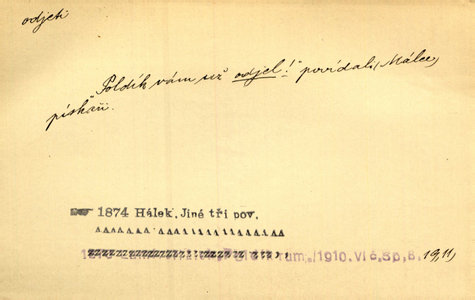 odjeti
"Poldík vám už odjel!" povídali Málce
pískaři.
1874 Hálek, Jiné tři pov.
rum. 1910. VI č, Sp, 8. 19,11,